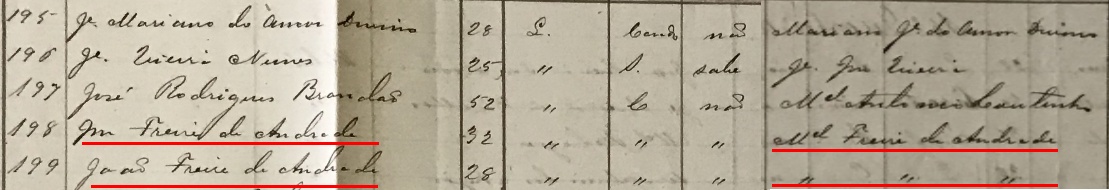 195 Je. Mariano do Amor Divino 28 L. Cando não Mariano Je. do Amor Divino
196 Je. Vieira Nunes 25 " S. sabe Je. Jm Vieira
197 José Rodrigues Brandão 52 " C não Mel Antonio Coutinho
198 Jm Freire de Andrade 32 " " " Mel Freire de Andrade
199 João Freire de Andrade 28 " " " " " "